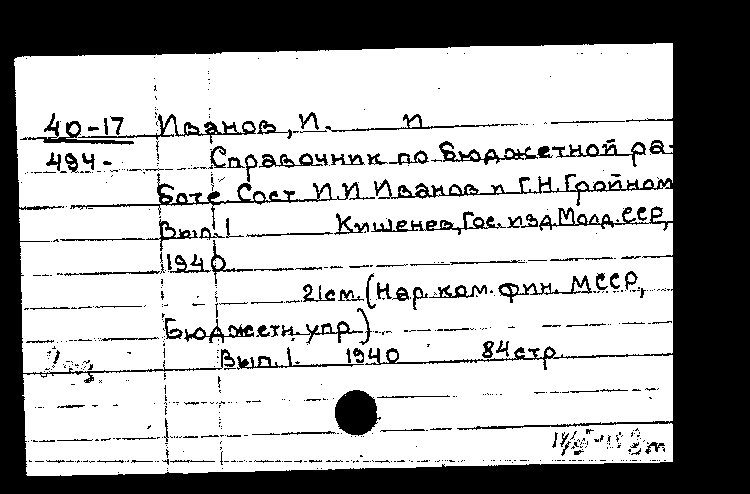 40-17 Иванов, И. И
494- Справочник по бюджетной ра-
боте Сост И.И Иванов и Г.Н.Гройном
Вып.1 Кишенев, Гос. изд. Молд. ССР,
1940
21см. (Нар. ком. фин. МССР,
Бюджетн. упр.)
2 экз. Вып. 1. 1940 84 стр.